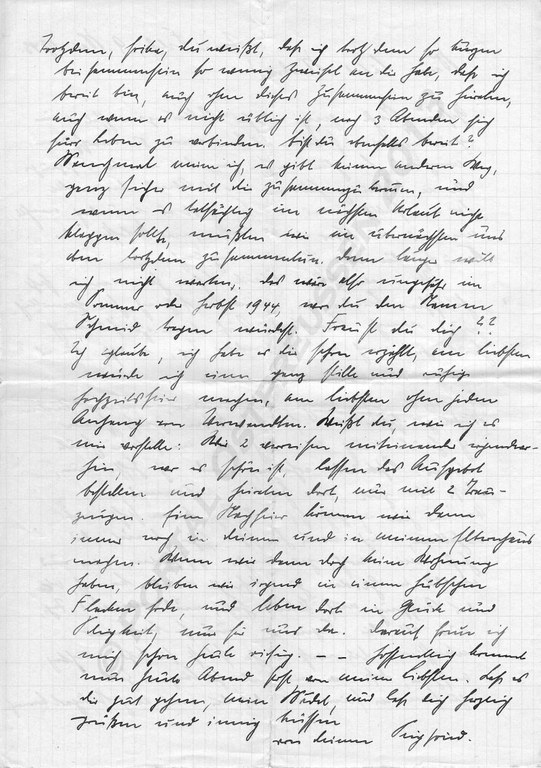 Trotzdem, Heike, du weißt, daß ich trotz dem so kurzen
beisammensein so wenig Zweifel an dir habe, daß ich
bereit bin, auch ohne dieses Zusammensein zu heiraten,
auch wenn es nicht üblich ist, nach 3 Abenden sich
fürs Leben zu verbinden. bist du ebenfalls bereit?
Manchmal mein ich, es gibt keinen anderen Weg,
ganz sicher mit dir zusammenzukommen, und
wenn es tatsächlich im nächsten Urlaub nicht
klappen sollte, müßten wir im übernächsten uns
eben trotzdem zusammentun. denn länger will
ich nicht warten. das wäre also ungefähr im
Sommer oder Herbst 1944, wo du den Namen
Schmid tragen würdest. Freust du dich??
Ich glaube, ich habe es dir schon erzählt, am liebsten
würde ich eine ganz stille und ruhige
Hochzeitsfeier machen, am liebsten ohne jeden
Anhang von Verwandten. Weißt du, wie ich es
mir vorstelle: Wir 2 verreisen miteinander irgendwo-
hin, wo es schön ist, lassen das Aufgebot
bestellen und heiraten dort, nur mit 2 Trau-
zeugen. Eine Nachfeier können wir dann
immer noch in deinem und in meinem Elternhaus
machen. Wenn wir dann doch keine Wohnung
haben, bleiben wir irgend in einem hübschen
Flecken Erde, und leben dort in Glück und
Seligkeit, nur für uns da. darauf freue ich
mich schon heute riesig. – – Hoffentlich kommt
nun heute Abend Post von meiner Liebsten. Laß es
dir gut gehen, mein Mädel, und laß dich herzlich
grüßen und innig küssen
von deinem Siegfried.